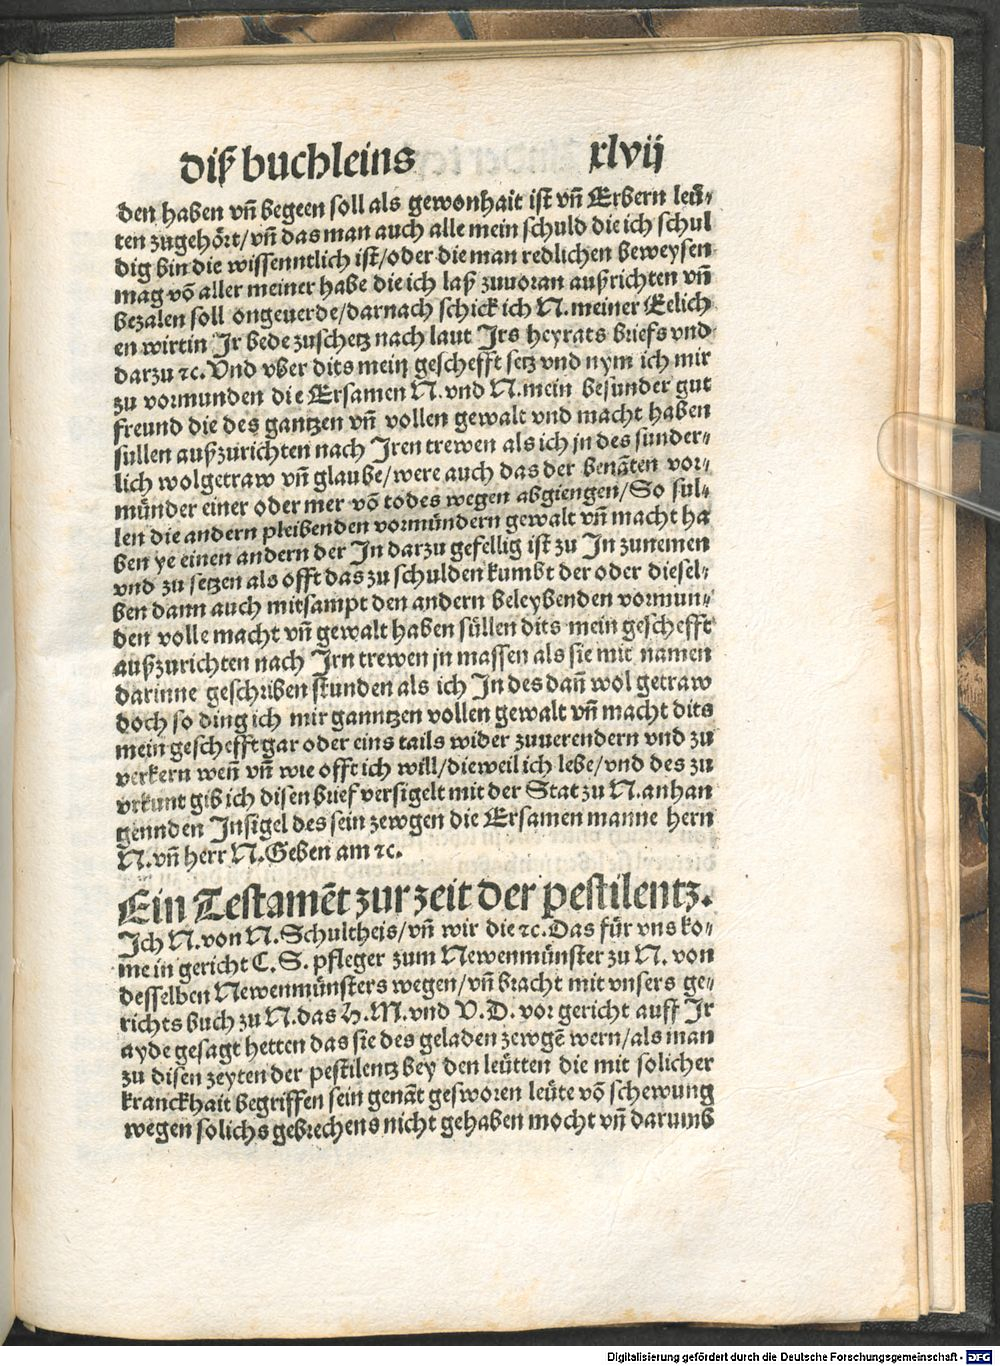 diß buchleins xlvij
den haben vn̄ begeen soll als gewonhait ist vn̄ Erbern leü⸗
ten zugehört/vn̄ das man auch alle mein schuld die ich schul
dig bin die wissenntlich ist/oder die man redlichen beweysen
mag vō aller meiner habe die ich laß zuuoran außrichten vn̄
bezalen soll ongeuerde/darnach schick ich N. meiner Eelich
en wirtin Ir bede zuschetz nach laut Irs heyrats briefs vnd
darzu ⁊c. Vnd vber dits mein geschefft setz vnd nym ich mir
zu vormunden die Ersamen N. vnd N. mein besunder gut
freund die des gantzen vn̄ vollen gewalt vnd macht haben
süllen außzurichten nach Iren trewen als ich jn des sunder⸗
lich wolgetraw vn̄ glaube/were auch das der benāten vor⸗
münder einer oder mer vō todes wegen abgiengen/So sul⸗
len die andern pleibenden vormündern gewalt vn̄ macht ha
ben ye einen andern der In darzu gefellig ist zu In zunemen
vnd zu setzen als offt das zu schulden kumbt der oder diesel⸗
ben dann auch mitsampt den andern beleybenden vormun⸗
den volle macht vn̄ gewalt haben süllen dits mein geschefft
außzurichten nach Irn trewen jn massen als sie mit namen
darinne geschriben stunden als ich In des dan̄ wol getraw
doch so ding ich mir ganntzen vollen gewalt vn̄ macht dits
mein geschefft gar oder eins tails wider zuuerendern vnd zu
verkern wen̄ vn̄ wie offt ich will/dieweil ich lebe/vnd des zu
vrkunt gib ich disen brief versigelt mit der Stat zu N. anhan
gennden Insigel des sein zewgen die Ersamen manne hern
N. vn̄ herr N. Geben am ⁊c.
Ein Testamēt zur zeit der pestilentz.
Ich N. von N. Schultheis/vn̄ wir die ⁊c. Das für vns ko⸗
me in gericht C. S. pfleger zum Newenmünster zu N. von
desselben Newenmünsters wegen/vn̄ bracht mit vnsers ge⸗
richts buch zu N. das H. M. vnd V. D. vor gericht auff Ir
ayde gesagt hetten das sie des geladen zewgē wern/als man
zu disen zeyten der pestilentz bey den leütten die mit solicher
kranckhait begriffen sein genāt gesworen leüte vō schewung
wegen solichs gebrechens nicht gehaben mocht vn̄ darumb
Digitalisierung gefördert durch die Deutsche Forschungsgemeinschaft - DFG